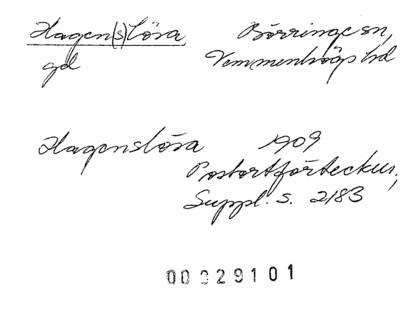 Hagen(s)lösa Börringe sn,
gd Vemmenhögs hd
Hagenslösa 1909
Postortförteckn.,
Suppl. s. 2183
00029101